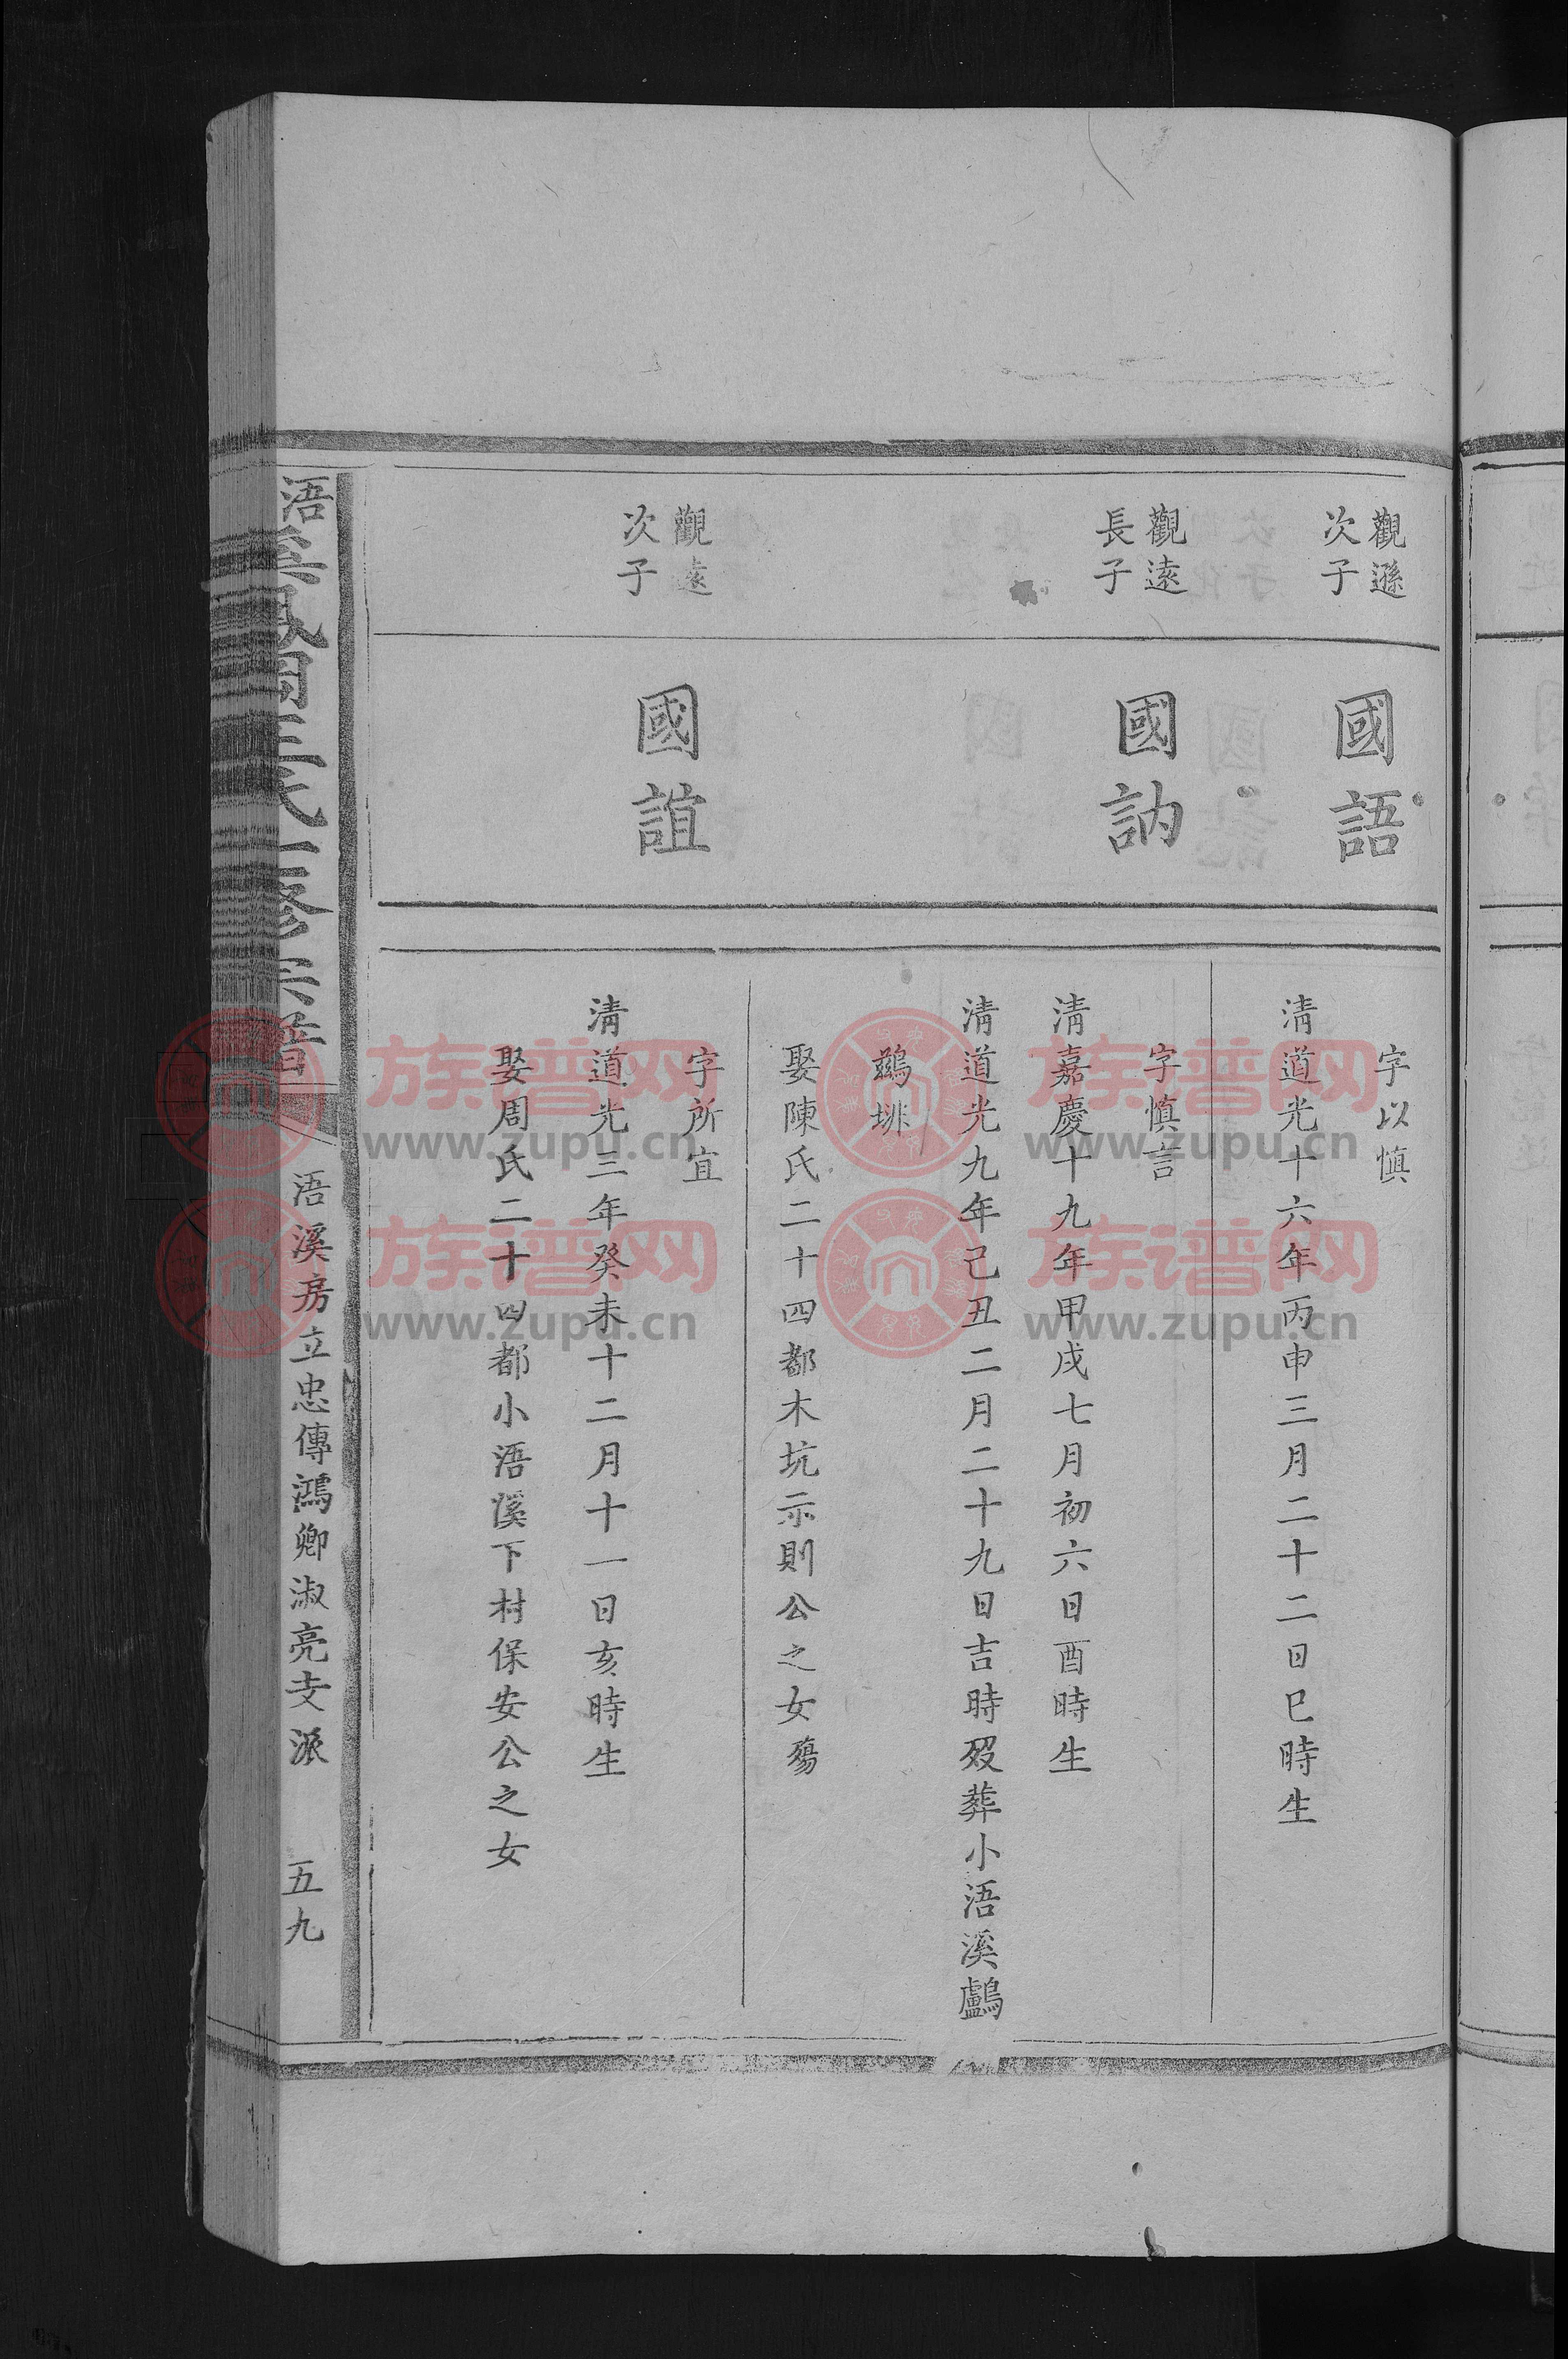 觀遜
次子
國語
字以慎
清道光十六年丙申三月二十二日巳時生
觀遠
長子
國訥
字慎言
清嘉慶十九年甲戌七月初六日酉時生
清道光九年己丑二月二十九日吉時歿葬小浯溪鸕
鷀垪
娶陳氏二十四都木坑示則公之女殤
觀遠
次子
國誼
字所宜
清道光三年癸未十二月十一日亥時生
娶周氏二十四都小浯溪下村保安公之女
浯溪鳳岡王氏
修宗譜
浯溪房立忠傳鴻卿淑亮支派
五九
族谱网
www.zupu.cn
族谱网
www.zupu.cn
族谱网
www.zupu.cn
族谱网
www.zupu.cn